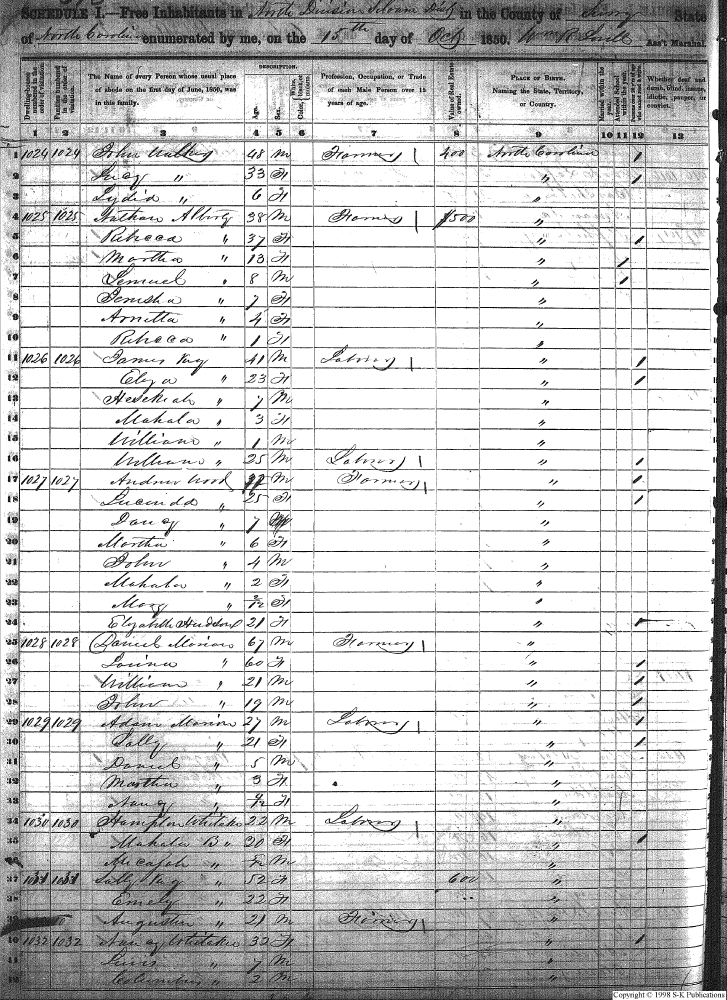 SCHEDULE I.—Free Inhabitants in North Division in the County of Surry State
of North Carolina enumerated by me, on the 15th day of Oct 1850. Ass't Marshal.
DESCRIPTION.
Dwelling-houses numbered in the order of visitation.
Families numbered in the order of visitation.
The Name of every Person whose usual place of abode on the first day of June, 1850, was in this family.
Age.
Sex.
Color, White, black, or mulatto.
Profession, Occupation, or Trade of each Male Person over 15 years of age.
Value of Real Estate owned.
PLACE OF BIRTH. Naming the State, Territory, or Country.
Married within the year.
Attended School within the year.
Whether deaf and dumb, blind, insane, idiotic, pauper, or convict.
1 2 3 4 5 6 7 8 9 10 11 12 13
1 1024 1024 John 48 M Farmer 400 North Carolina /
2 Lucy " 33 F " /
3 Lydia " 6 F "
4 1025 1025 Nathan 38 M Farmer 1500 "
5 Rebecca " 37 F " /
6 Martha " 13 F " /
7 Lemuel " 8 M " /
8 " 7 F "
9 " 4 F "
10 Rebecca " 1 F "
11 1026 1026 James Key 41 M Laborer " /
12 " 23 F " /
13 Hesekiah " 7 M "
14 Mahala " 3 F "
15 William " 1 M "
16 William " 25 M Laborer " /
17 1027 1027 Andrew Wood M Farmer " /
18 Lucinda " 25 F " /
19 " 7 "
20 Martha " 6 F "
21 John " 4 M "
22 Mahala " 2 F "
23 Mary " 2/12 F "
24 Elizabeth Hudson 21 F " /
25 1028 1028 Daniel Marion 67 M Farmer "
26 " 60 F " /
27 William " 21 M " /
28 John " 19 M " /
29 1029 1029 Adam Marion 27 M Laborer " /
30 Sally " 21 F " /
31 Daniel " 5 M "
32 Martha " 3 F "
33 Nancy " F "
34 1030 1030 Hampton Whitaker 22 M Laborer "
35 Mahala B " 20 F " /
36 Micajah " M "
37 1031 1031 Sally Key " 52 F 600 "
38 Emely " 22 F "
39 " 21 M Farmer "
40 1032 1032 Nancy Whitaker 32 F " /
41 Lewis " 7 M "
42 Columbus " 2 M "
Copyright © 1998 S-K Publications